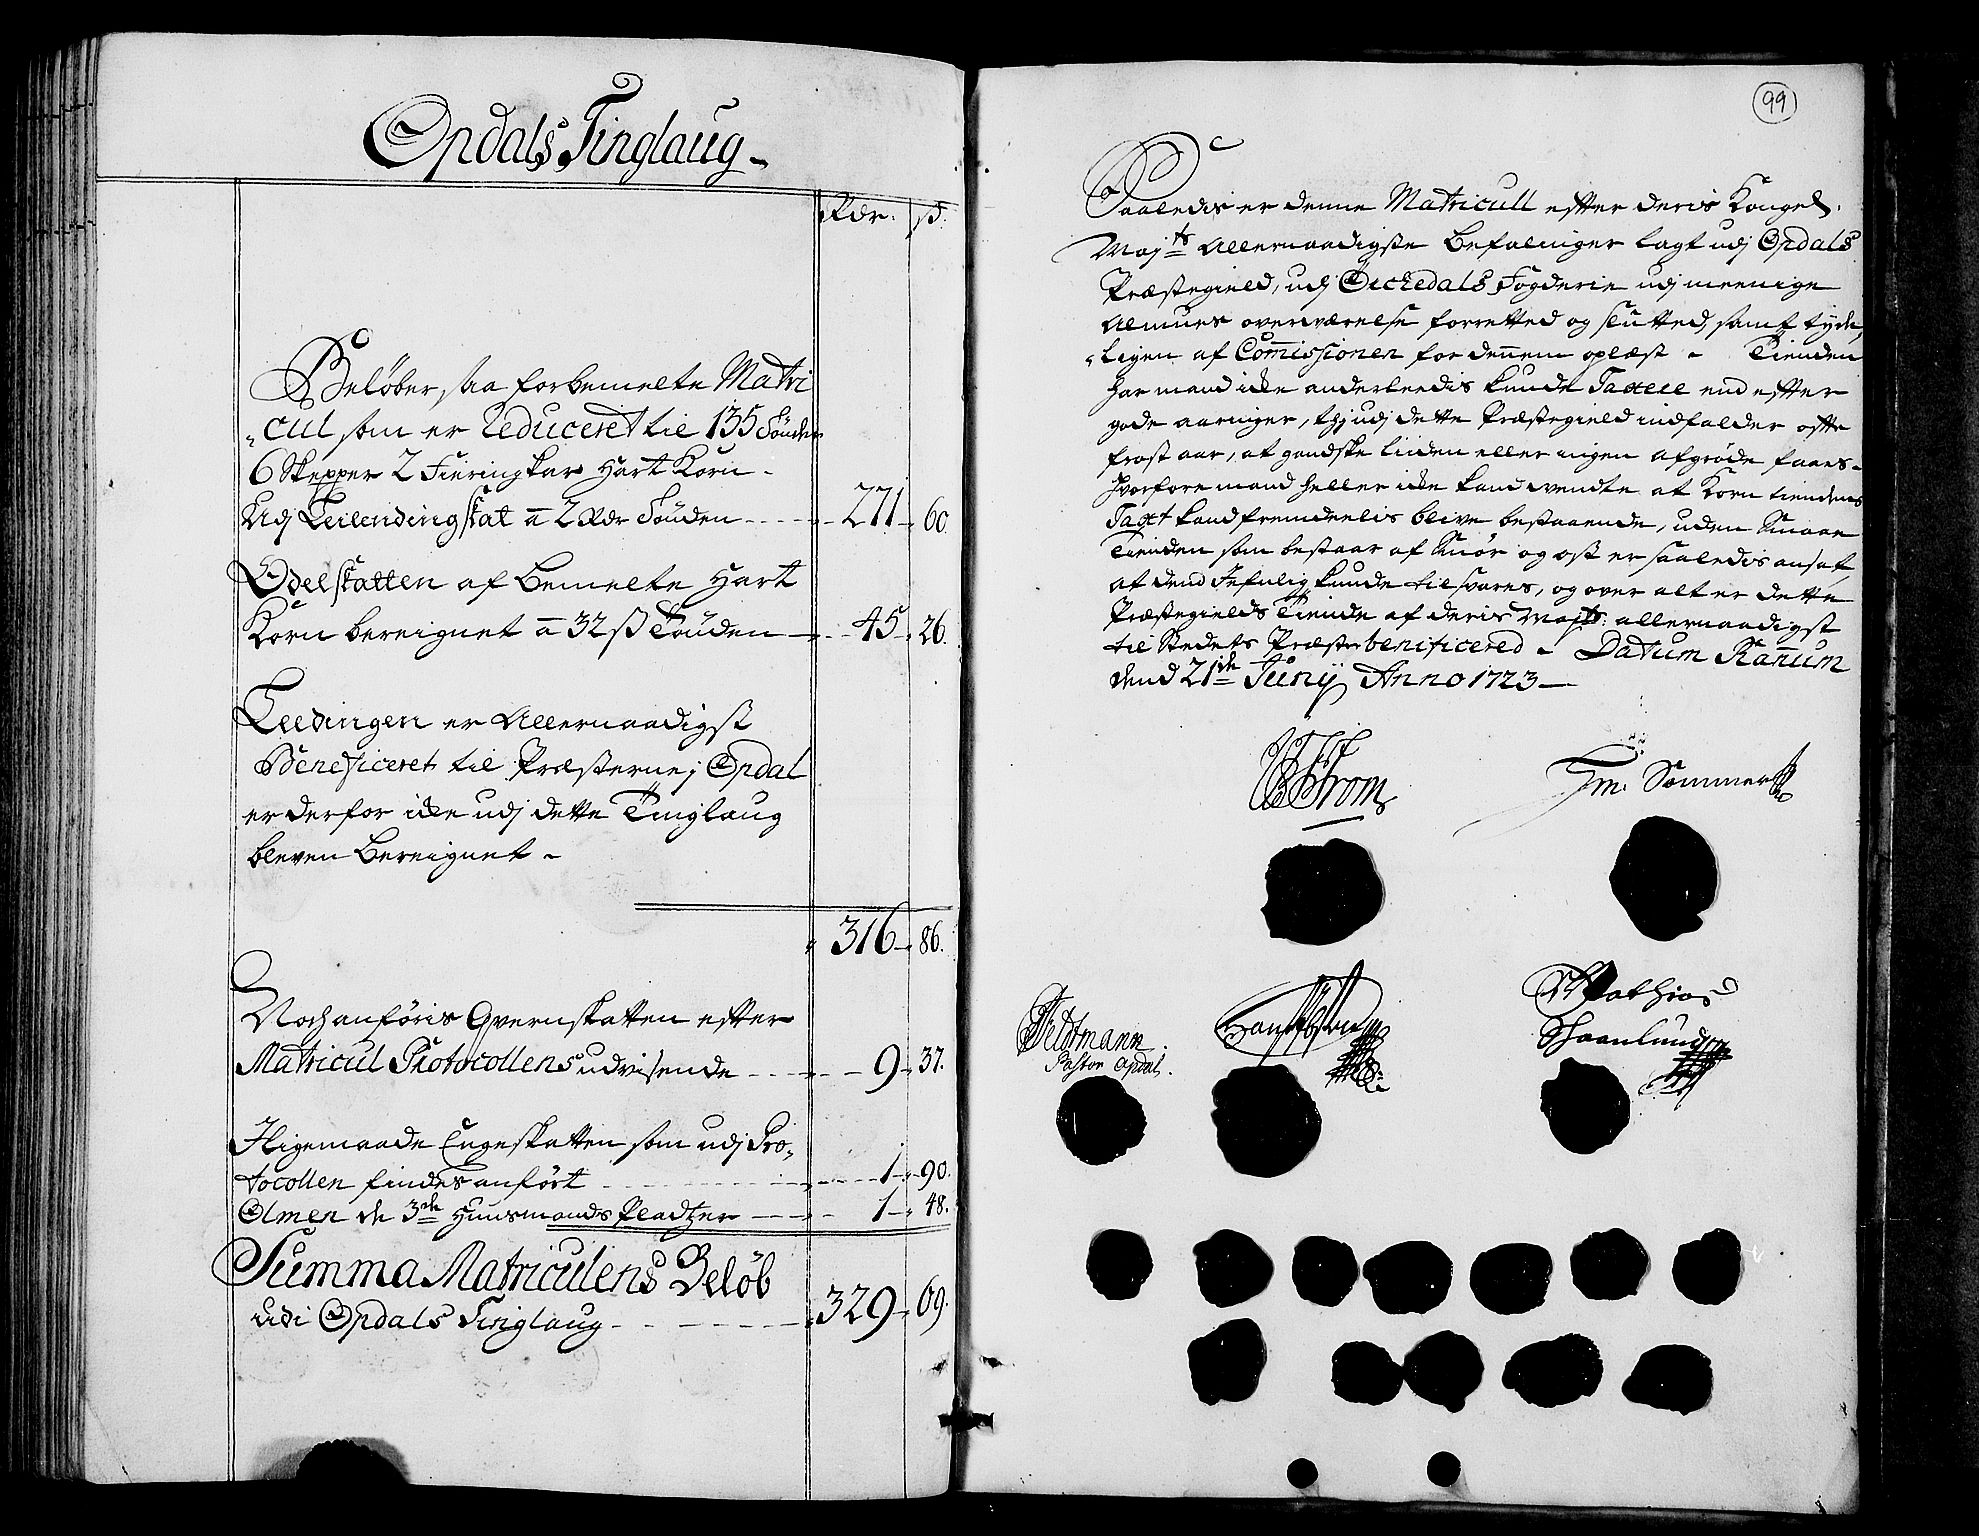 Opdals Tinglaug
Rdr. ß.
Beløber sia forbemelte Matri
cul som er Reduceret til 135 Tønder
6 Skepper 2 Fieringkar Hart Korn
Udj Leilendingskat a 2 Rdr Tønden 271 60
Odelskatten af bemelte Hart
Korn bereignet a 32 ß Tønden 45 26.
Leedingen er Allernaadigst
Beneficeret til Præsterne j Opdal
er derfor icke udj dette Tinglaug
bleven Bereignet
316 86.
Noch anføris Qvernskatten efter
Matricul Protocollens udvisende 9 37.
Iligemaade Engeskatten som udj Pro-
tocollen findes anført 1 90.
Olmen de 3de Huusmands Pladtzer 1 48.
Summa Matriculens Beløb
udi Opdals Tinglaug 329 69.
99
Saaledis er denne Matricull efter deris Kongel.
Majts Allernaadigste Befalninger lagt udj Opdals
Præstegield, udj Örckedals Fogderie udj meenige
Almues overværelse forretted og sluttet, samt tyde
ligen af Commissionen for dennem oplæst Tienden
har mand icke anderleedis kunde Taxere end efter
gode aaringer, thj udj dette Præstegield indfalder offte
frost aar, at gandske liden eller ingen afgrøde faaes
hvorfore mand heller icke kand vendte at Korn tiendens
Taxt kand fremdeelis blive bestaaende, uden Smaae
Tienden som bestaar af Smør og ost er saaledis ansat
at dend kunde tilsvares, og over alt er dette
Præstegields Tiende af deris Majts: allernaadigst
til Stedets Præster benificered Datum Rannum
dend 21de Junij Anno 1723
Strøm
Tm: Sommer
Feldtmann
Pastor Opdal.
Mathias
Schaanlund